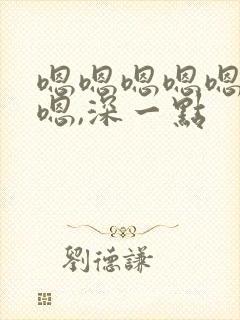 嗯嗯嗯嗯嗯
嗯,深一點
劉德謙